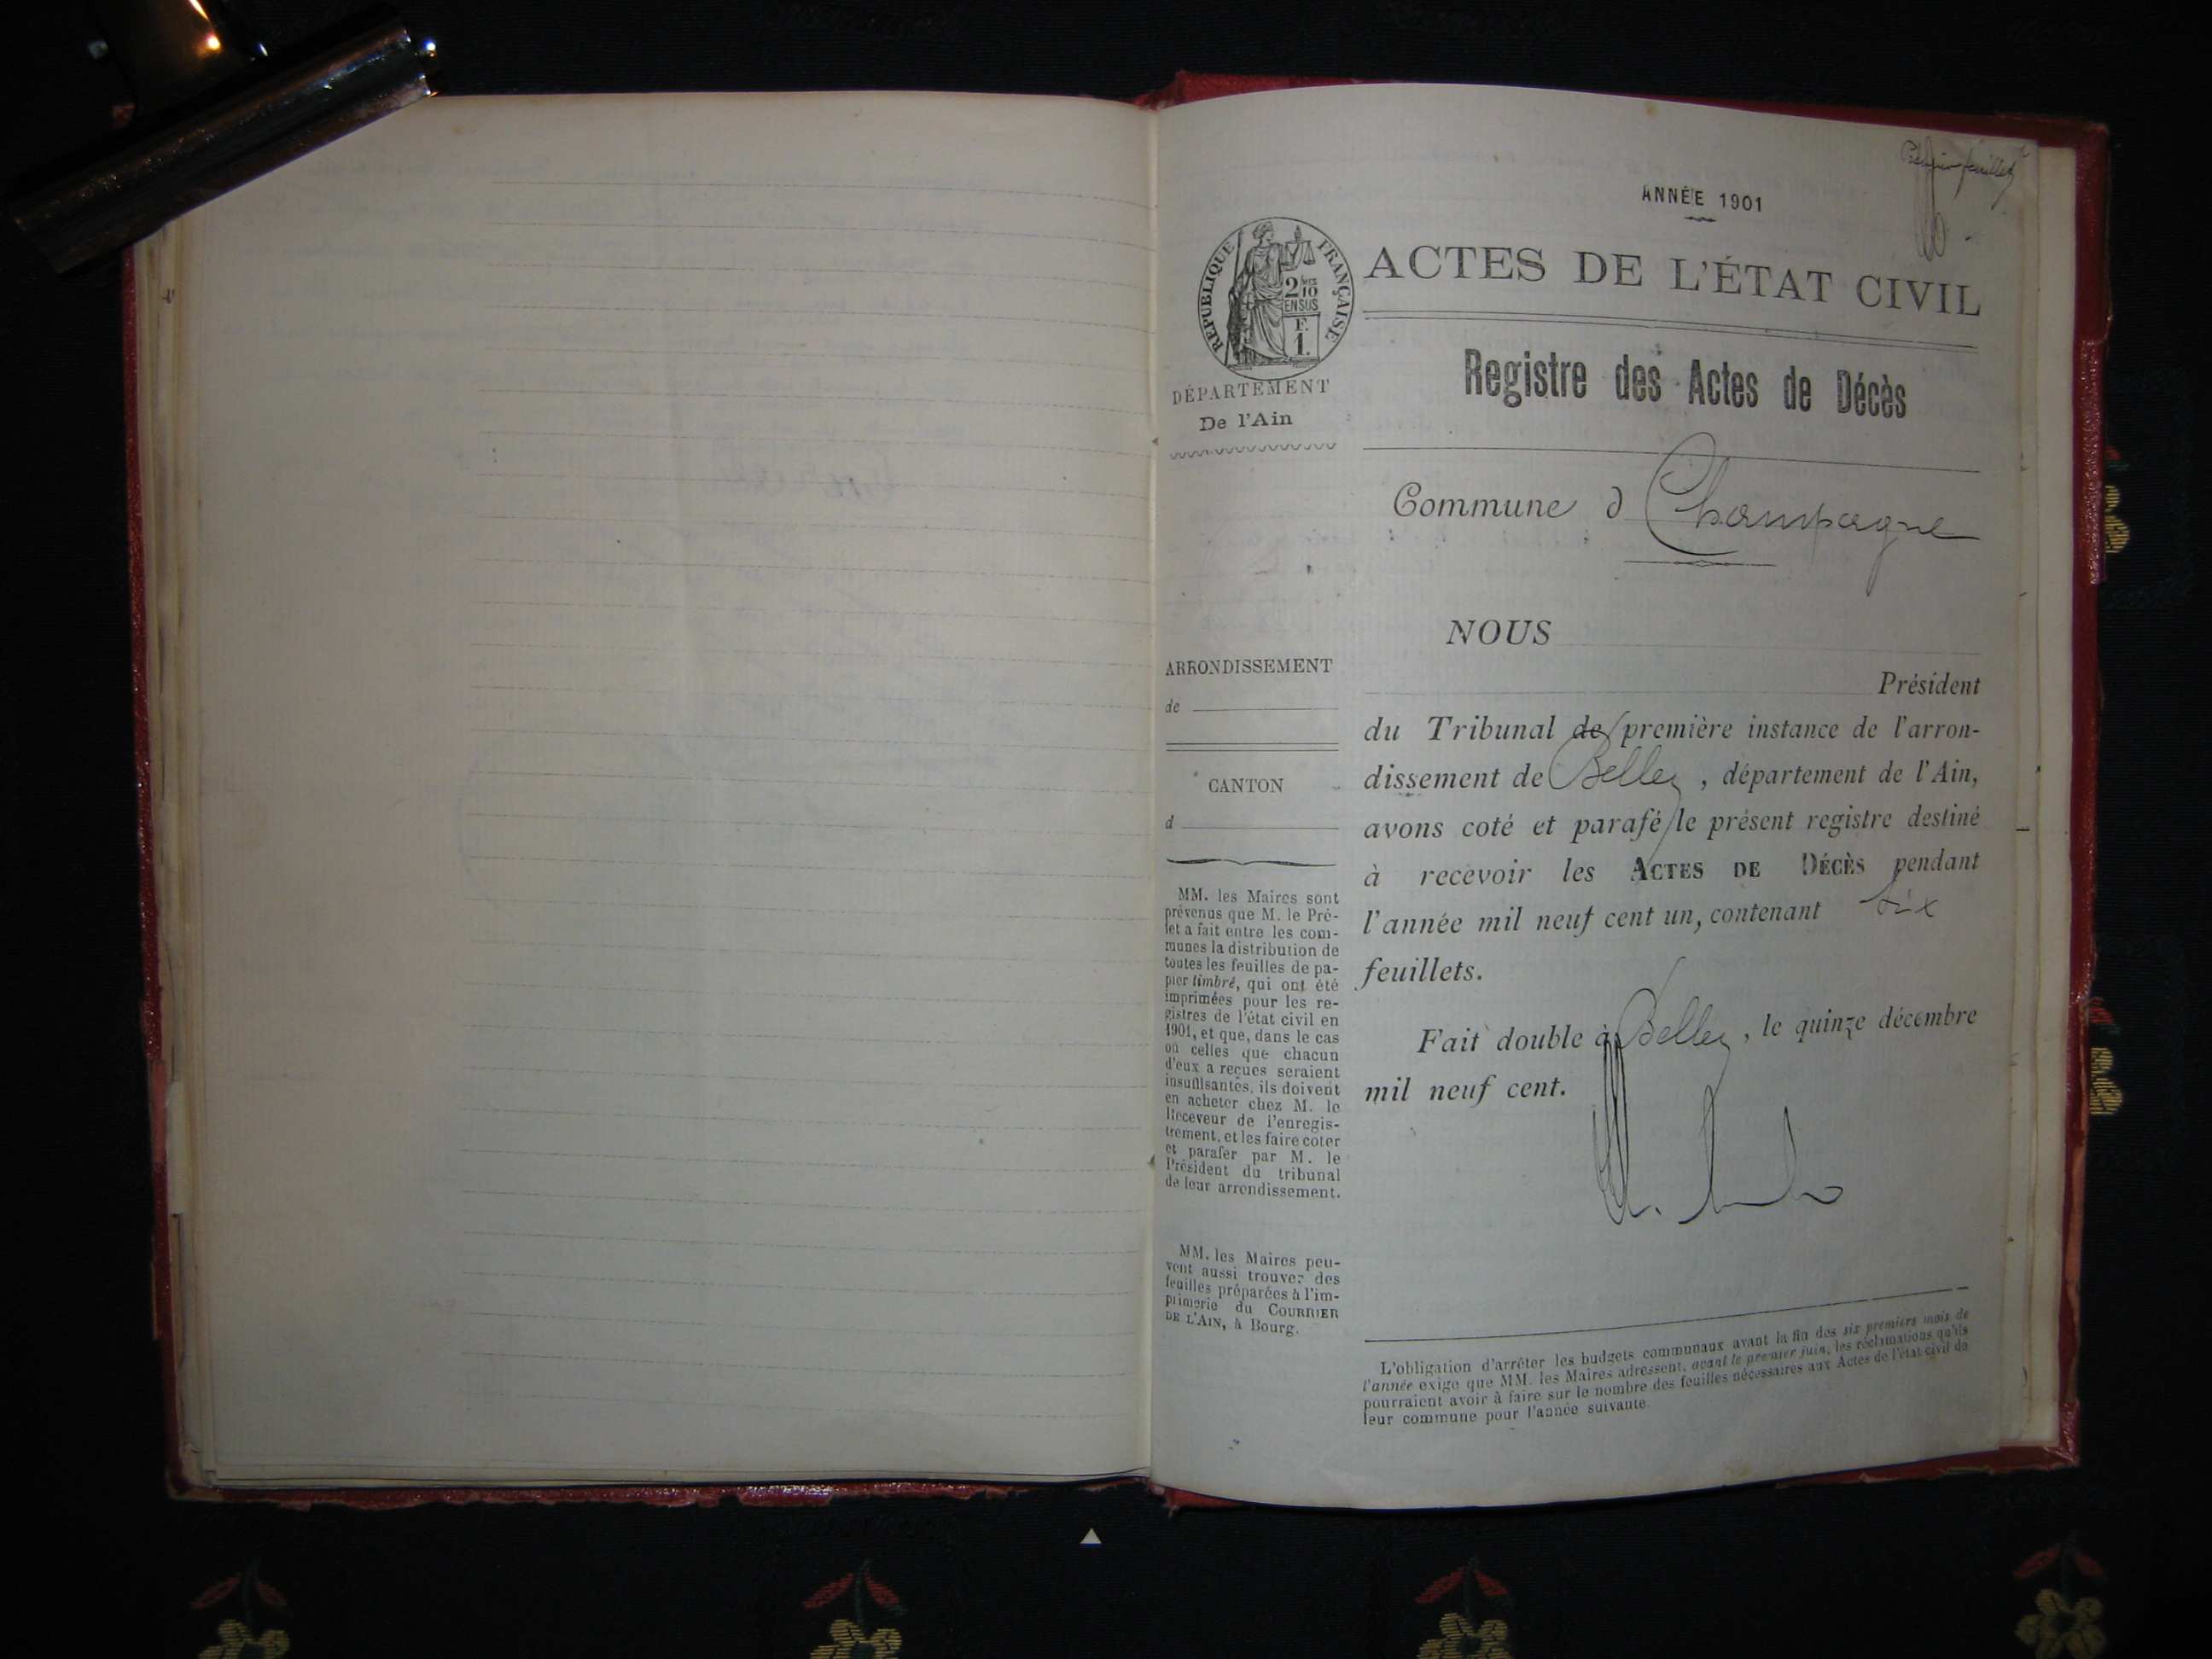 Premier feuillet
ANNÉE 1901
RÉPUBLIQUE FRANÇAISE
2 /10
EN SUS
F.
1.
ACTES DE L'ÉTAT CIVIL
DÉPARTEMENT
De l'Ain
Registre des Actes de Décès
Commune d Champagne
NOUS
Président
du Tribunal de première instance de l'arron-
dissement de Belley, département de l'Ain,
avons coté et parafé le présent registre destiné
à recevoir les ACTES DE DÉCÈS pendant
l'année mil neuf cent un, contenant six
feuillets.
Fait double à Belley, le quinze décembre
mil neuf cent.
ARRONDISSEMENT
de
CANTON
d
MM. les Maires sont
prévenus que M. le Pré-
fet a fait entre les com-
munes la distribution de
toutes les feuilles de pa-
pier timbré, qui ont été
imprimées pour les re-
gistres de l'état civil en
1901, et que, dans le cas
où celles que chacun
d'eux a reçues seraient
insuffisantes, ils doivent
en acheter chez M. le
Receveur de l'enregis-
trement, et les faire coter
et parafer par M. le
Président du tribunal
de leur arrondissement.
MM. les Maires peu-
vent aussi trouver des
feuilles préparées à l'im-
primerie du COURRIER
DE L'AIN, à Bourg.
L'obligation d'arrêter les budgets communaux avant la fin des six premiers mois de
l'année exige que MM. les Maires adressent, avant le premier juin, les réclamations qu'ils
pourraient avoir à faire sur le nombre des feuilles nécessaires aux Actes de l'état civil de
leur commune pour l'année suivante.